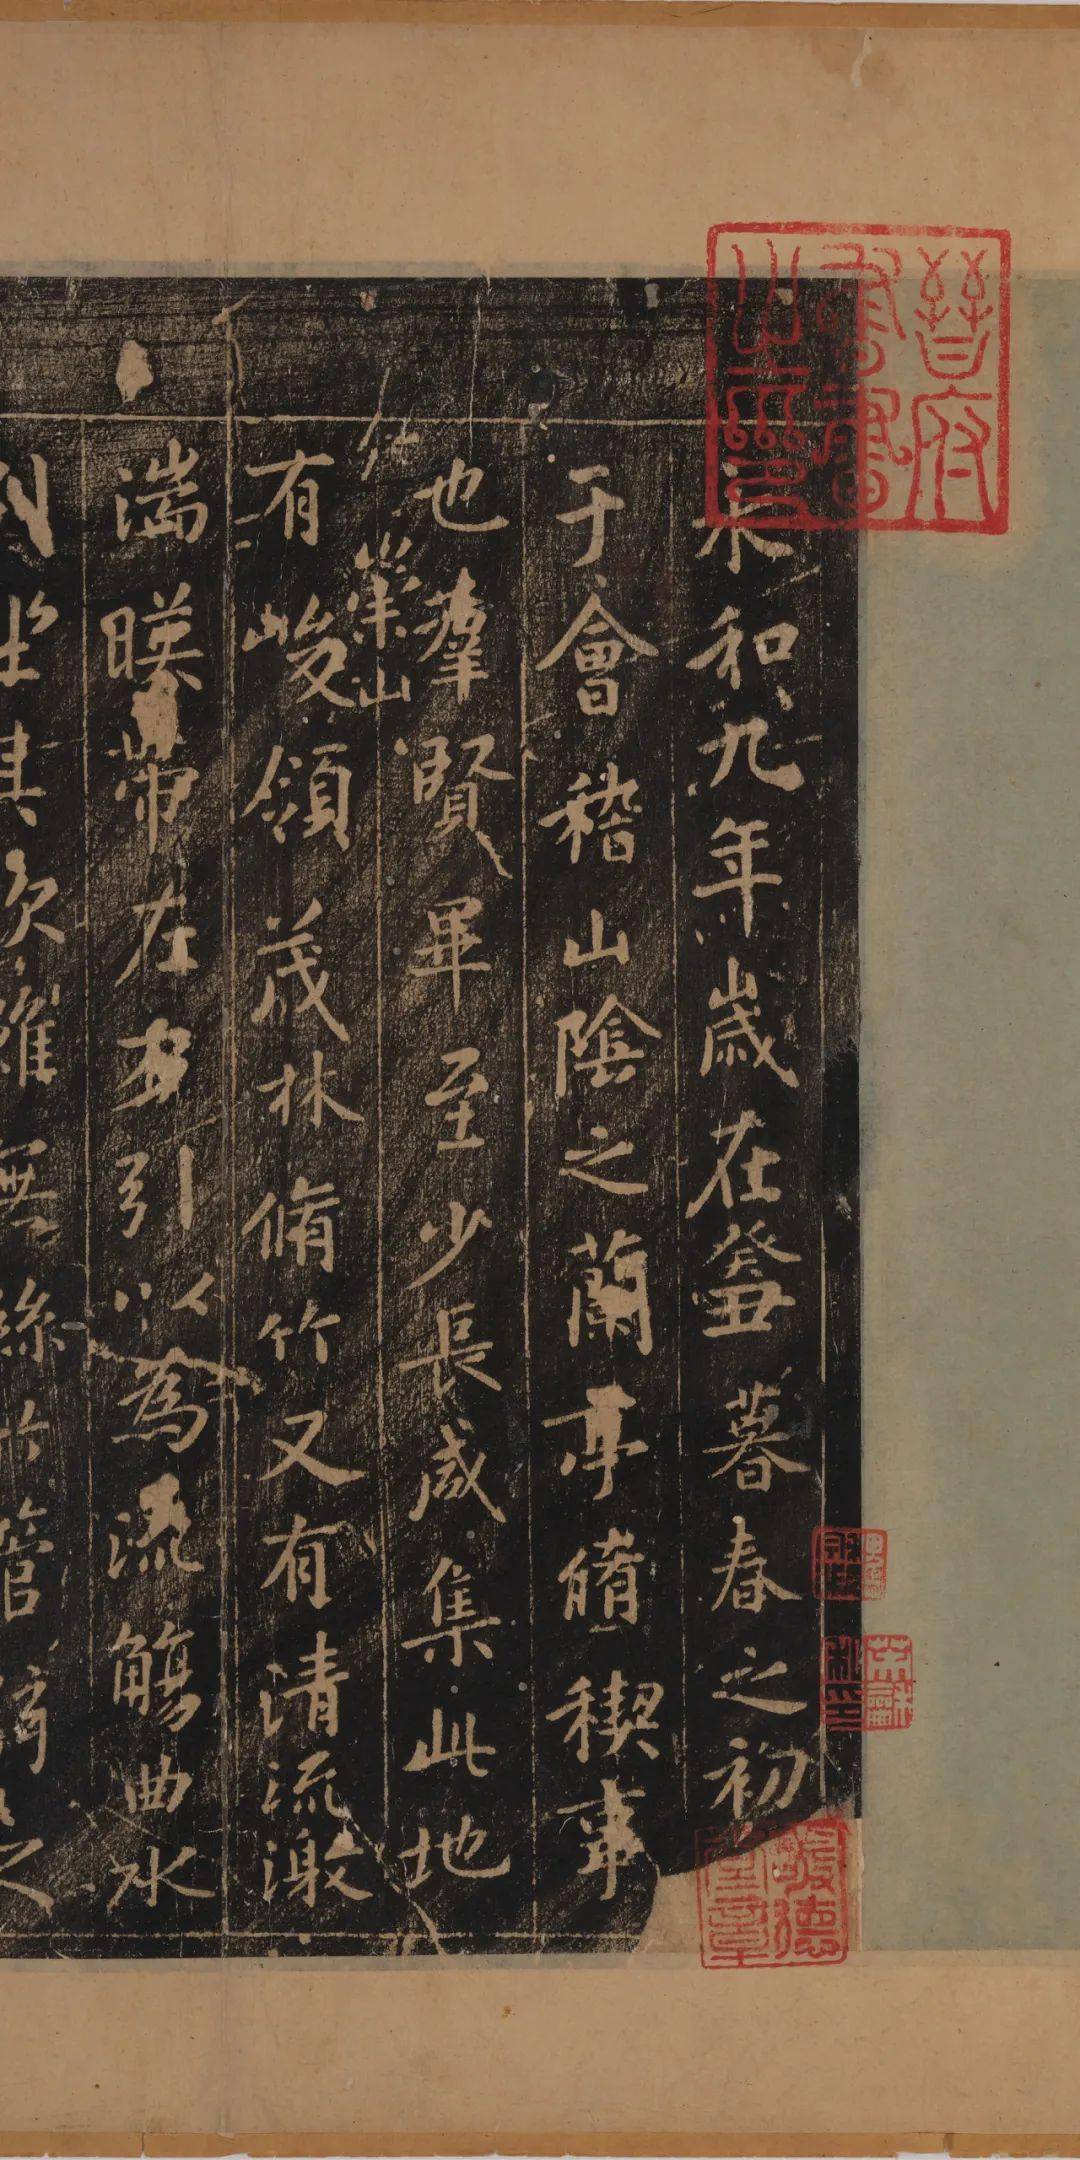 晉府書畫之印
永和九年歲在癸丑暮春之初
于會稽山陰之蘭亭脩稧事
也羣賢畢至少長咸集此地
崇山
有峻領茂林脩竹又有清流激
湍暎帶左右引以為流觴曲水
列坐其次雖無絲竹管弦之
敬德堂章